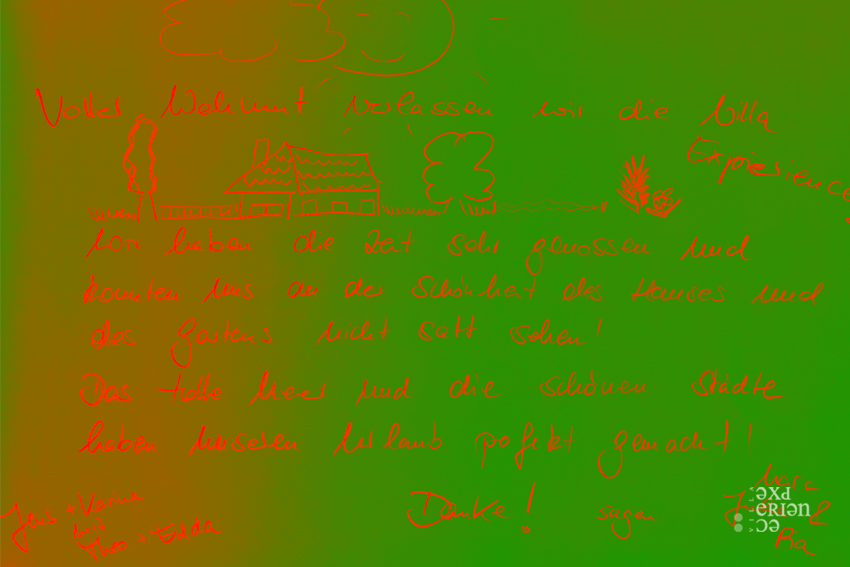 Voller Wehmut verlassen wir die Villa
Experience
Wir haben die Zeit sehr genossen und
konnten uns an der Schönheit des Hauses und
des Gartens nicht satt sehen!
Das tolle Meer und die schönen Städte
haben unseren Urlaub pefekt gemacht!
Danke! sagen
Jens + Karina
mit
Theo + Edda
&